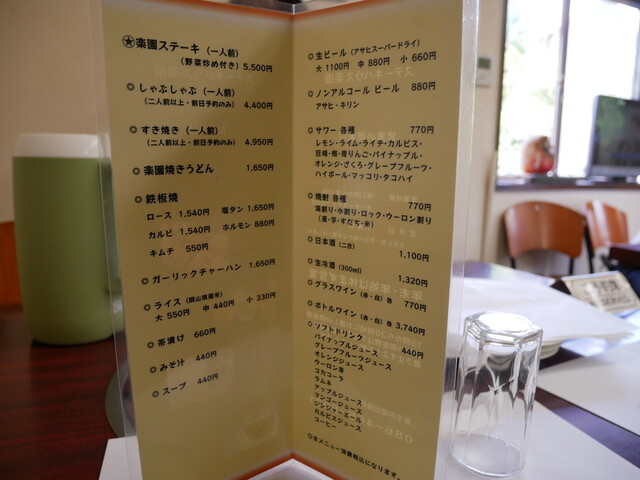 ★楽園ステーキ（一人前）
（野菜炒め付き）5,500円
◎しゃぶしゃぶ（一人前）
（二人前以上・前日予約のみ） 4,400円
◎すき焼き（一人前）
（二人前以上・前日予約のみ） 4,950円
◎楽園焼きうどん 1,650円
◎鉄板焼
ロース 1,540円 塩タン 1,650円
カルビ 1,540円 ホルモン 880円
キムチ 550円
◎ガーリックチャーハン 1,650円
◎ライス（岡山県産米）
大 550円 中 440円 小 330円
◎茶漬け 660円
◎みそ汁 440円
◎スープ 440円
◎生ビール（アサヒスーパードライ）
大 1100円 中 880円 小 660円
◎ノンアルコール ビール 880円
アサヒ・キリン
◎サワー 各種 770円
レモン・ライム・ライチ・カルピス・
巨峰・梅・青りんご・パイナップル・
オレンジ・ざくろ・グレープフルーツ・
ハイボール・マッコリ・タコハイ
◎焼酎 各種 770円
湯割り・水割り・ロック・ウーロン割り
（麦・芋・すだち・米）
◎日本酒（二合） 1,100円
◎生冷酒（300ml） 1,320円
◎グラスワイン（赤・白）各 770円
◎ボトルワイン（赤・白）各 3,740円
◎ソフトドリンク 440円
パイナップルジュース
グレープフルーツジュース
オレンジジュース
ウーロン茶
コカコーラ
ラムネ
アップルジュース
マンゴージュース
ジンジャーエール
カルピスジュース
コーヒー
◎全メニュー消費税込になります。